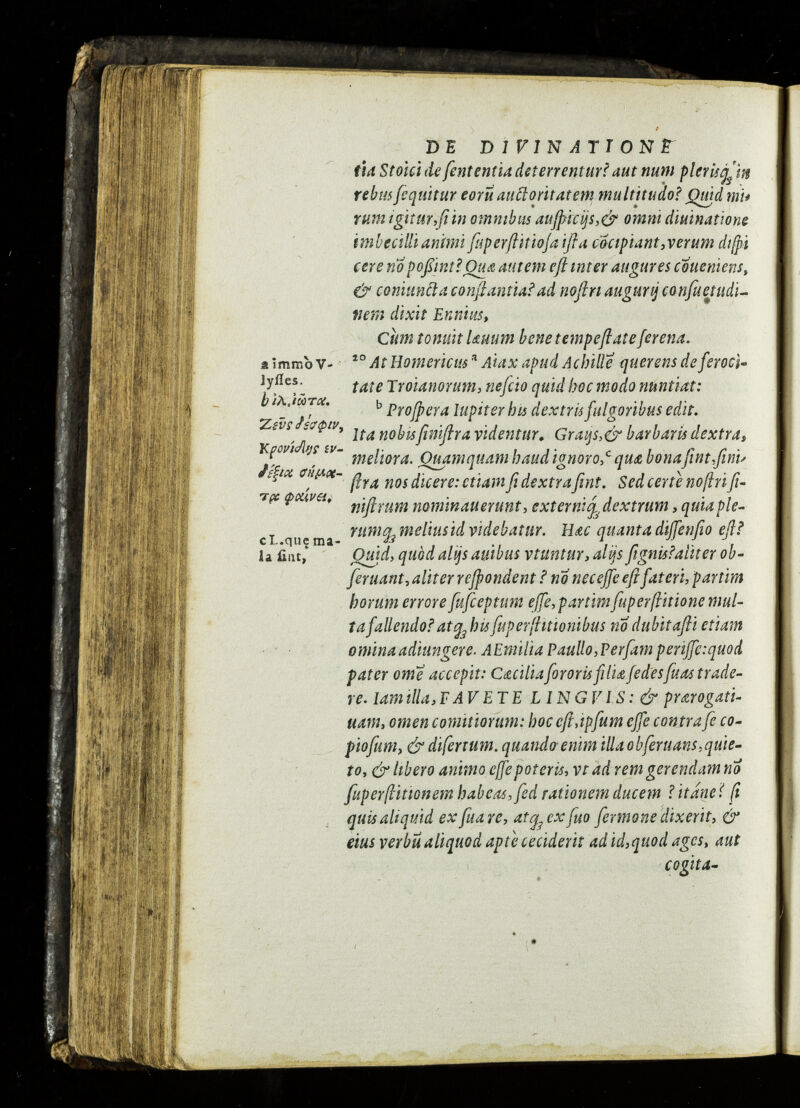 DE DIVINATIONE
tia Stoici de sententia deterrentur? aut num plerisq̃ in
rebus sequitur eorũ auctoritatem multitudo? Quid mi-
rum igitur, si in omnibus auspicijs, & omni diuinatione
imbecilli animi superstitiosa ista cõcipiant, verum dispi
cere nõ poßint? Quæ autem est inter augures cõueniens,
& coniuncta constantia? ad nostri augurij consuetudi-
nem dixit Ennius,
Cùm tonuit læuum bene tempestate serena.
20 At Homericus a Aiax apud Achillẽ querens de feroci-
tate Troianorum, nescio quid hoc modo nuntiat:
b Prospera Iupiter his dextris fulgoribus edit.
Ita nobis sinistra videntur. Graijs, & barbaris dextra,
meliora. Quamquam haud ignoro, c quæ bona sint, sini-
stra nos dicere: etiam si dextra sint. Sed certè nostri si-
nistrum nominauerunt, externiq̃ dextrum, quia ple-
rumq̃ melius id videbatur. Hæc quanta dissensio est?
Quid, quòd alijs auibus vtuntur, alijs signis? aliter ob-
seruant, aliter respondent? nõ necesse est fateri, partim
horum errore susceptum esse, partim superstitione mul-
ta fallendo? atq̃ his superstitionibus nõ dubitasti etiam
omina adiungere. AEmilia Paullo, Persam perisse: quod
pater omẽ accepit: Cæcilia sororis filiæ sedes suas trade-
re. Iam illa, FAVETE LINGVIS: & prærogati-
uam, omen comitiorum: hoc est, ipsum esse contra se co-
piosum, & disertum. quando enim illa obseruans, quie-
to, & libero animo esse poteris, vt ad rem gerendam nõ
superstitionem habeas, sed rationem ducem? itáne? si
quis aliquid ex sua re, atq̃ ex suo sermone dixerit, &
eius verbũ aliquod aptè ceciderit ad id, quod ages, aut
cogita-
a immò V-
lysses.
b ἰλ. ἰῶτα.
Ζεὺς δέ σφιν,
Κρονίδης ἐν-
δέξια σήμα-
τα φαίνει,
c L. quę ma-
la sint,